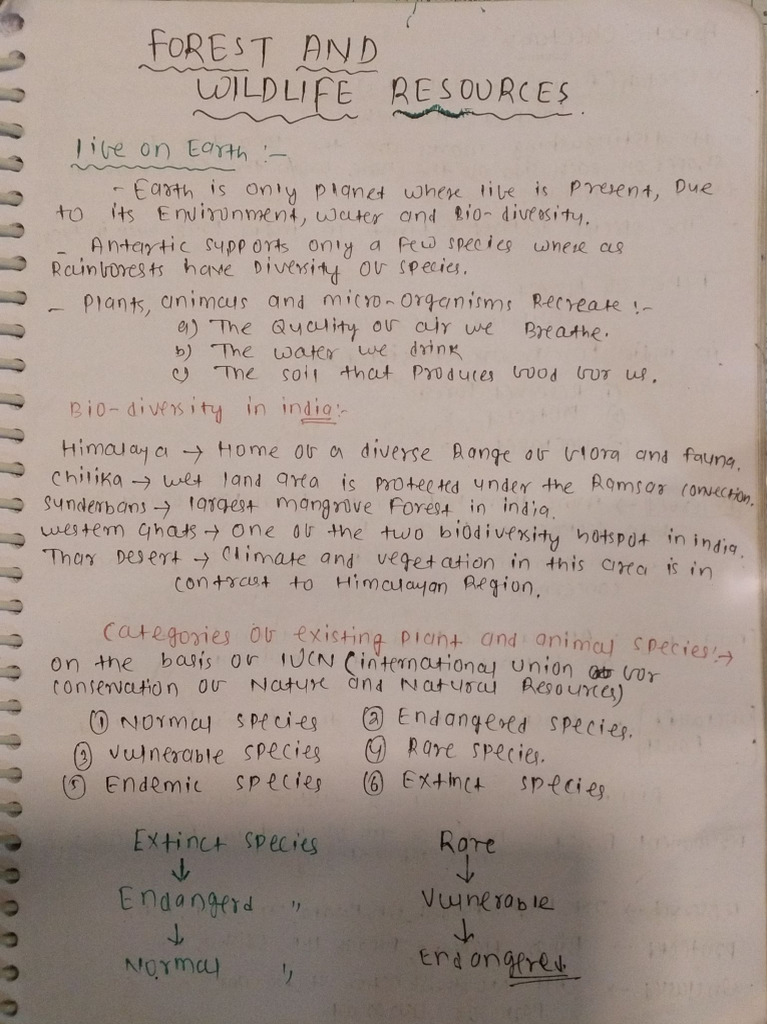 FOREST AND
WILDLIFE RESOURCES.
live on Earth :-
- Earth is only planet where live is Present, Due
to its Environment, water and Bio-diversity.
- Antartic supports only a few species where as
Rainforests have Diversity of species.
- Plants, animals and micro-organisms Recreate :-
a) The Quality of air we Breathe.
b) The water we drink
c) The soil that Produces food for us.
Bio-diversity in india:-
Himalaya → Home of a diverse Range of flora and fauna.
Chilika → wet land area is protected under the Ramsar convection.
Sunderbans → largest mangrove Forest in india.
western Ghats → one of the two biodiversity hotspot in india.
Thar Desert → Climate and vegetation in this area is in
contrast to Himalayan Region.
Categories of existing plant and animal species:→
on the basis of IUCN (international union for
conservation of Nature and Natural Resources)
① Normal species ② Endangered species.
③ Vulnerable species ④ Rare species.
⑤ Endemic species ⑥ Extinct species
Extinct species Rare
↓ ↓
Endangerd " Vulnerable
↓ ↓
Normal " Endangered